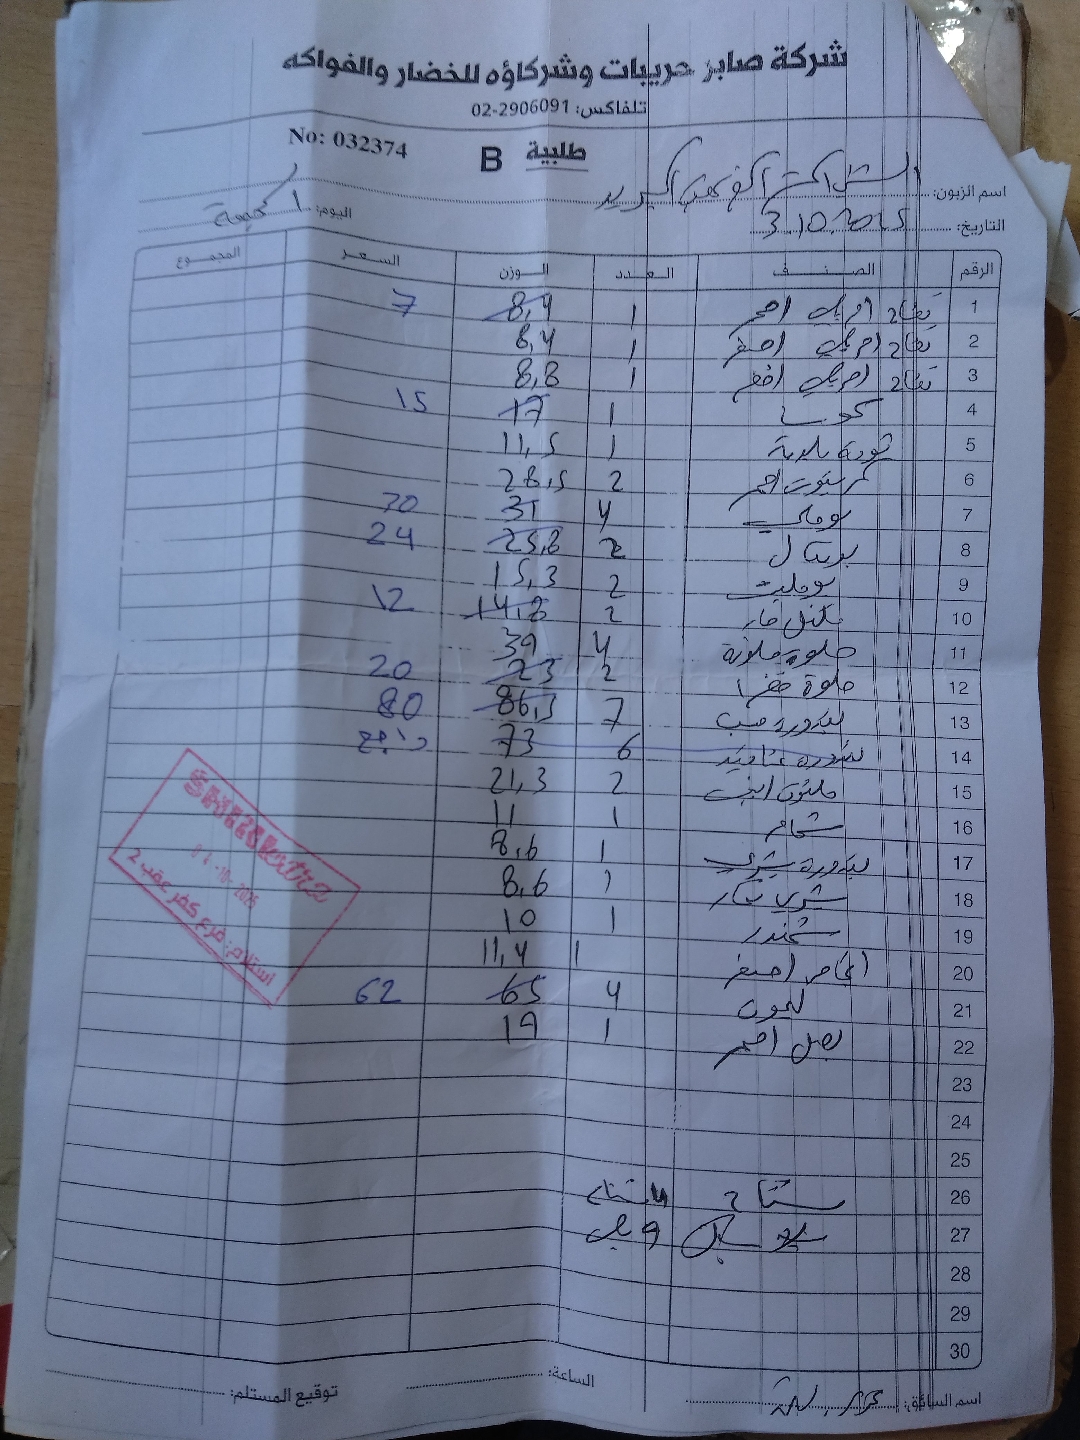 شركة صابر حريبات وشركاؤه للخضار والفواكه
تلفاكس: 02-2906091
No: 032374 B طلبية
اسم الزبون:
اليوم: الجمعة
التاريخ: 3.10.2025
الرقم الصنف العدد الوزن السعر المجموع
1 تفاح امريكي احمر 1 8,4 7
2 تفاح امريكي اصفر 1 8,4
3 تفاح امريكي اخضر 1 8,8
4 كوسا 1 17 15
5 بلدية 1 11,5
6 احمر 2 28,5
7 بوملي 4 31 30
8 برتقال 2 25,8 24
9 بومليت 2 15,3
10 2 14,8 12
11 حلوة ملونة 4 39
12 حلوة خضرا 2 23 20
13 بندورة حب 7 86,5 80
14 بندورة عناقيد 6 73 راجع
15 2 21,3
16 1 11
17 بندورة شيري 1 8,6
18 شيري 1 8,6
19 شمندر 1 10
20 اجاص اصفر 1 11,4
21 ليمون 4 65 62
22 بصل احمر 1 19
23
24
25
26
27
28
29
30
استلام: فرع كفر عقب 2
اسم السائق:
الساعة:
توقيع المستلم: